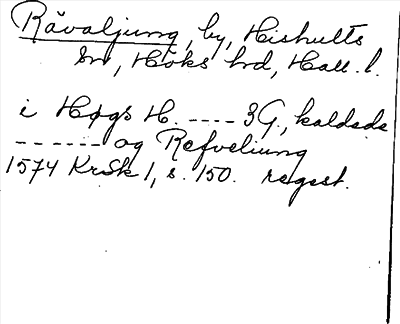 Råvaljung, by, Hishults
sn, Höks hrd, Hall. l.
i Høgs H. ---- 3 G., kaldede
------ og Refveliung
1574 KrSk 1, s. 150. regest.